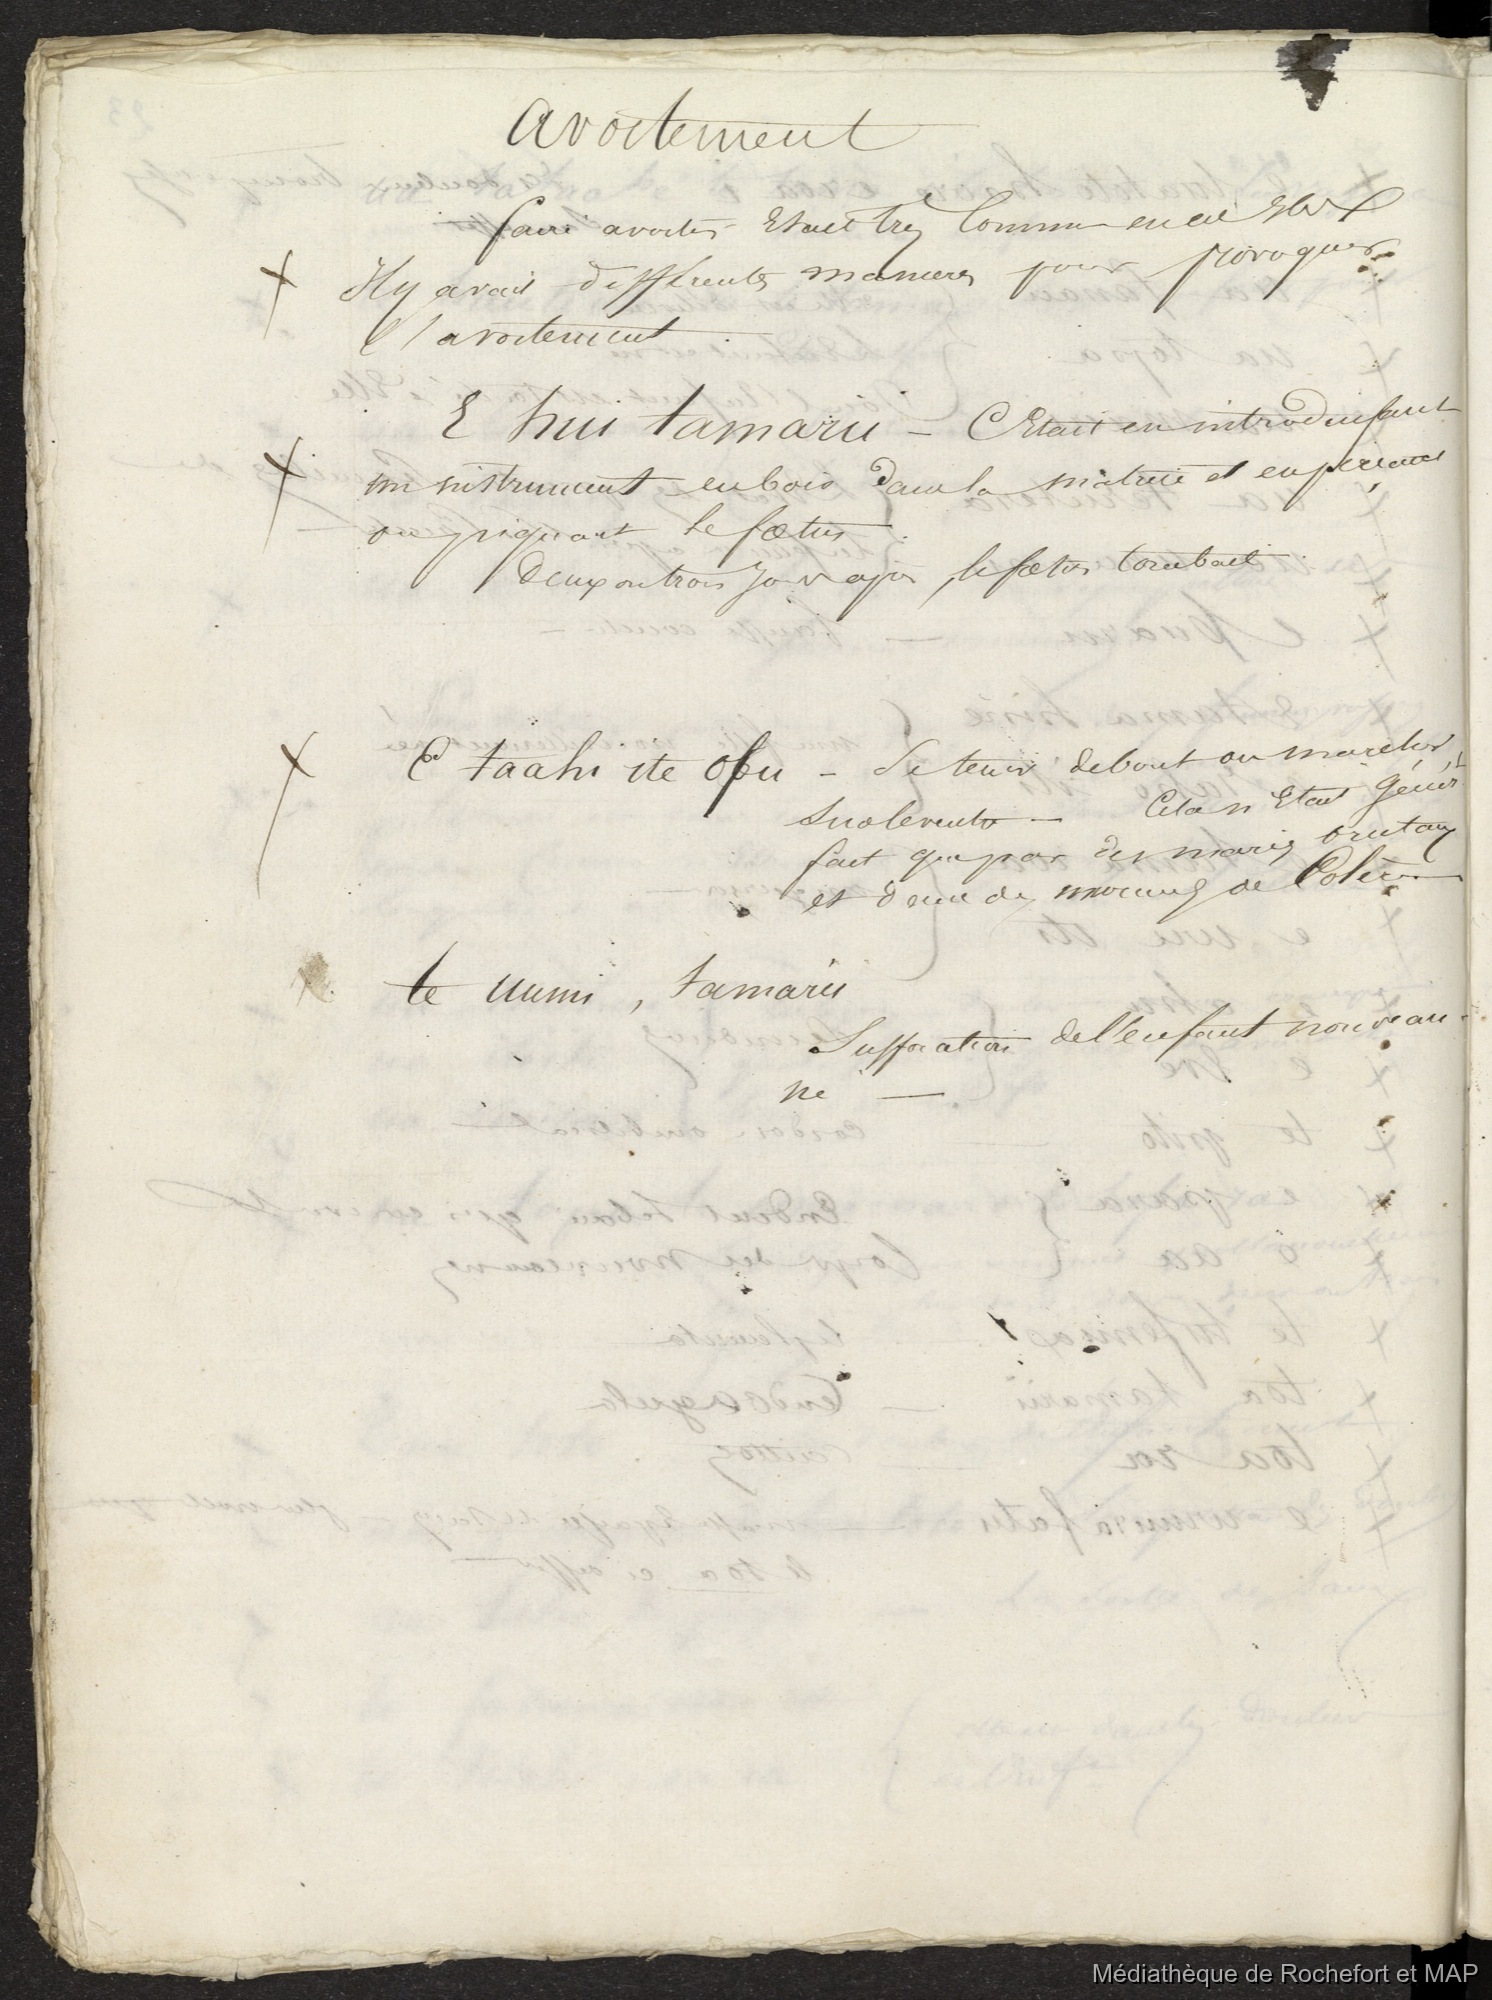 Avortement
faire avorter Etait très Commun en ces
Il y avait differentes manieres pour provoquer
l'avortement
E hui tamarii - C'Etait en introduisant
un instrument en bois dans la matrice et en perçant
ou piquant le fœtus.
Deux ou trois jours après, le fœtus tombait
E taahi ite opu - Se tenir debout ou marcher
Sur le ventre - Cela n'Etait
fait que par des maris brutaux
et dans des moments de Colère
te uumi, tamarii
Suffocation de l'enfant nouveau-
né -
Médiathèque de Rochefort et MAP